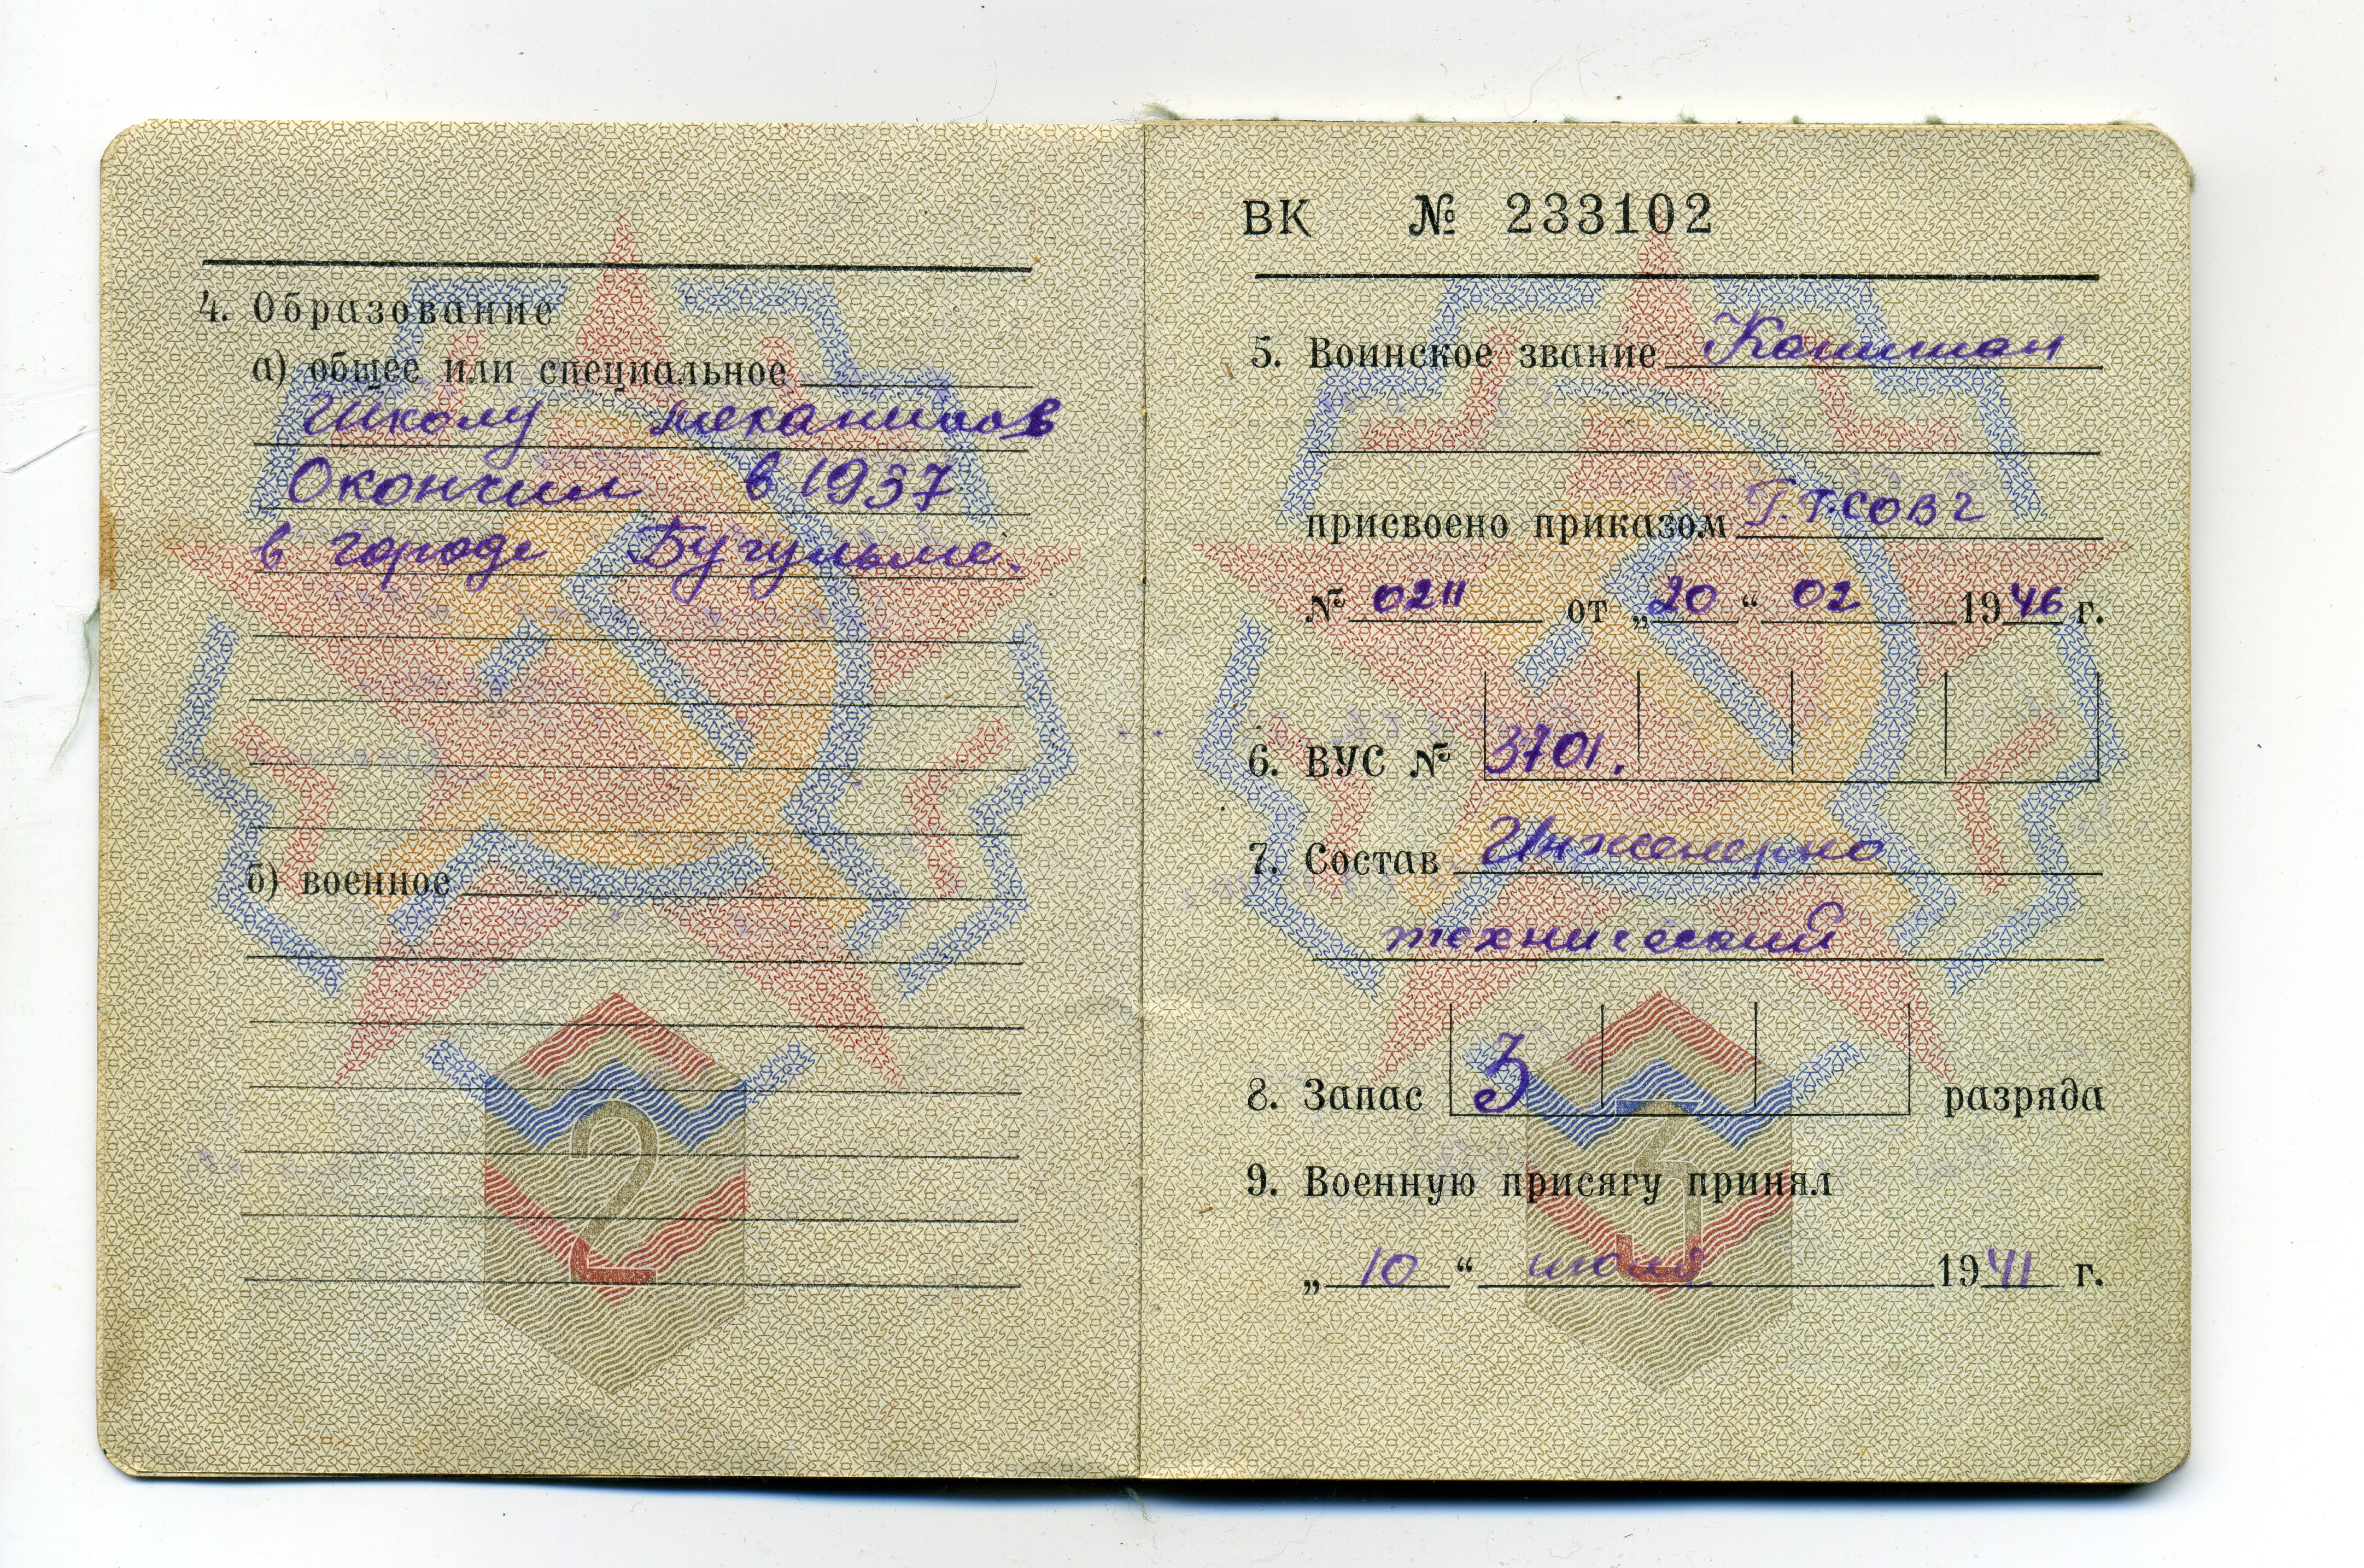 4. Образование
а) общее или специальное
Школу механиков
Окончил в 1937
в городе Бугульме.
б) военное
2
ВК № 233102
5. Воинское звание Капитан
присвоено приказом Г.Г.СОВГ
№ 0211 от „20“ 02 1946 г.
6. ВУС № 3701.
7. Состав Инженерно
технический
8. Запас 3 разряда
9. Военную присягу принял
„10“ июля 1941 г.